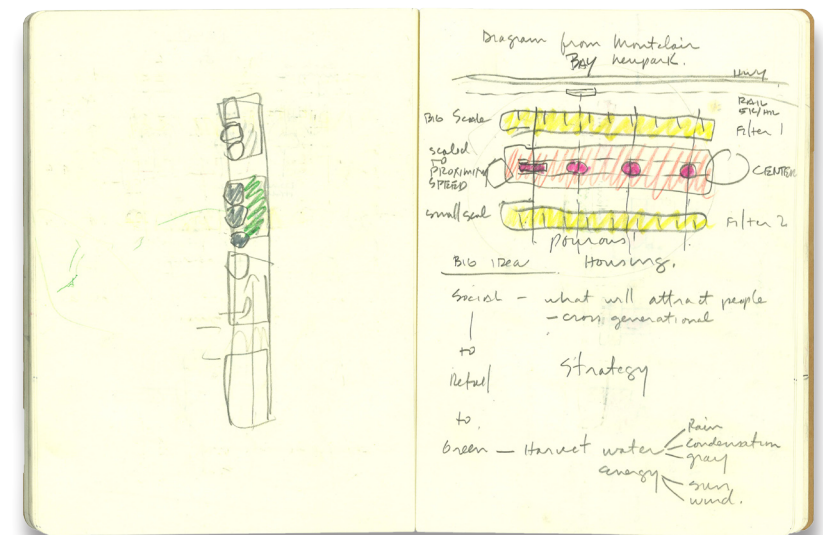 Diagram from Montclair
BAY Newpark.
HWY
RAIL
BIG Scale
Filter 1
scaled
to
PROXIMITY
SPEED
CENTER
small scal
Filter 2
pourous
BIG IDEA
Housing.
Social – what will attract people
– cross generational
to
Retail
Strategy
to
Green – Harvest water
Rain
condensation
gray
energy
sun
wind.